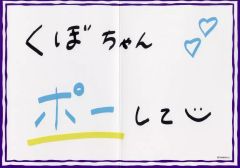 くぼちゃん
ポーして